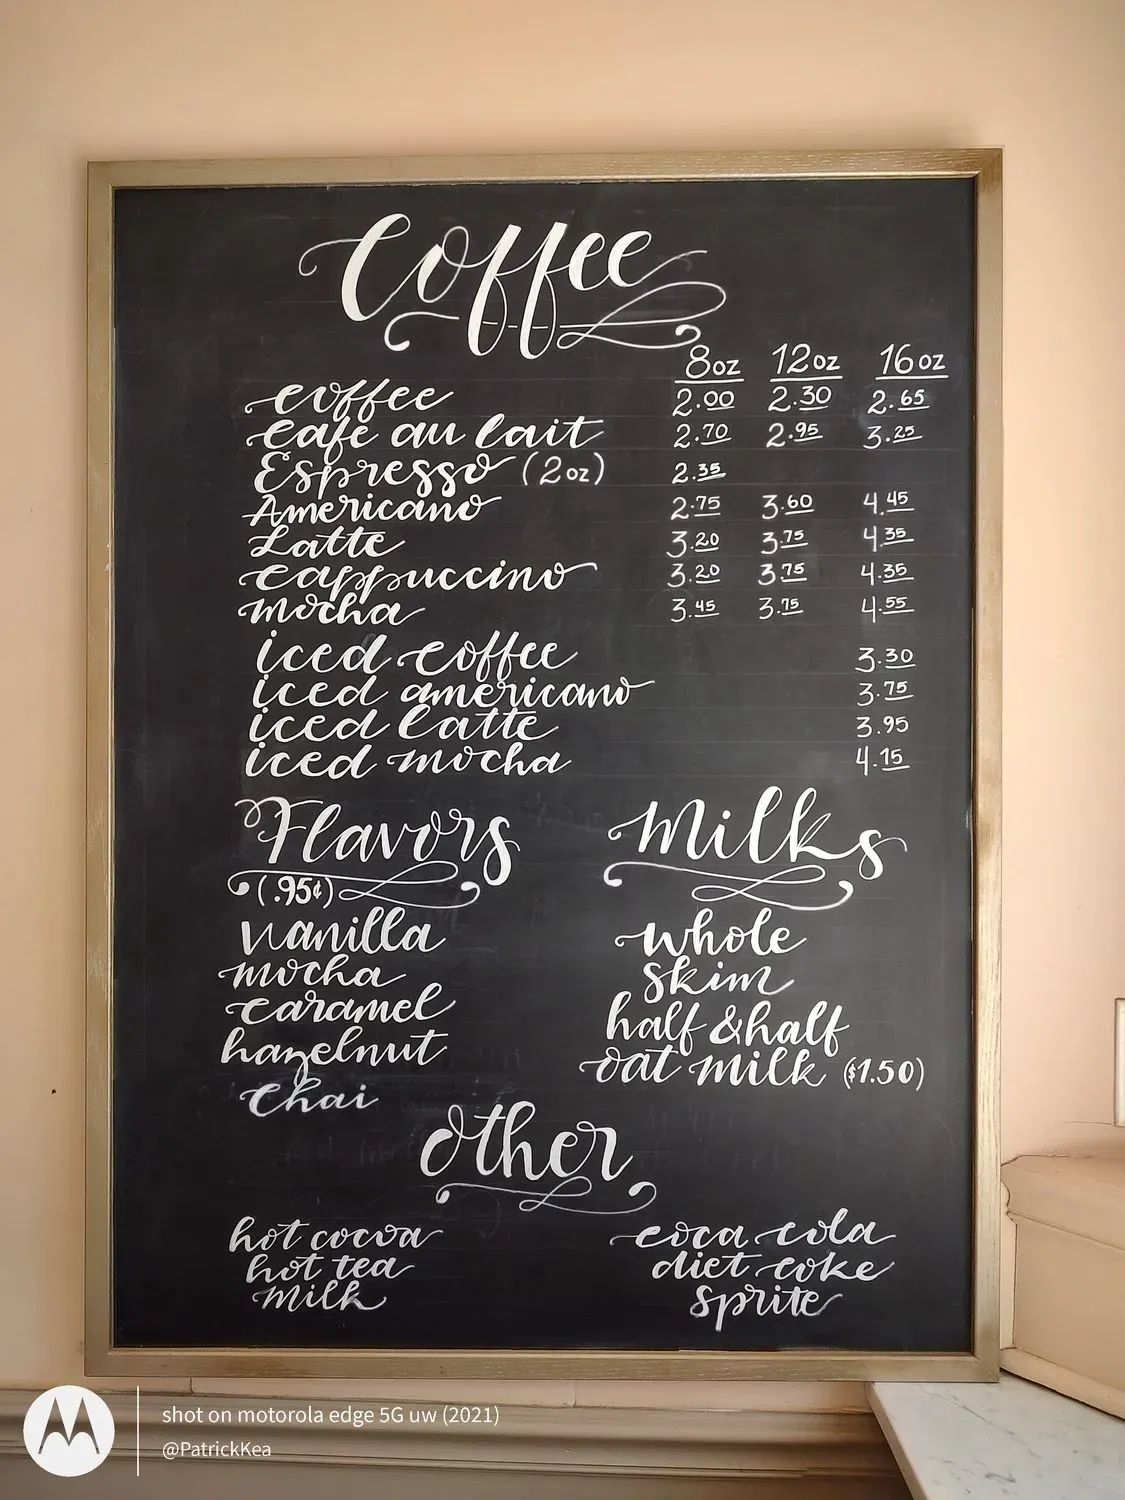 Coffee
8oz 12oz 16oz
coffee 2.00 2.30 2.65
cafe au lait 2.70 2.95 3.25
Espresso (2oz) 2.35
Americano 2.75 3.60 4.45
Latte 3.20 3.75 4.35
cappuccino 3.20 3.75 4.35
mocha 3.45 3.75 4.55
iced coffee 3.30
iced americano 3.75
iced latte 3.95
iced mocha 4.15
Flavors
(.95¢)
vanilla
mocha
caramel
hazelnut
Chai
Milks
whole
skim
half & half
oat milk ($1.50)
Other
hot cocoa
hot tea
milk
coca cola
diet coke
sprite
shot on motorola edge 5G uw (2021)
@PatrickKea